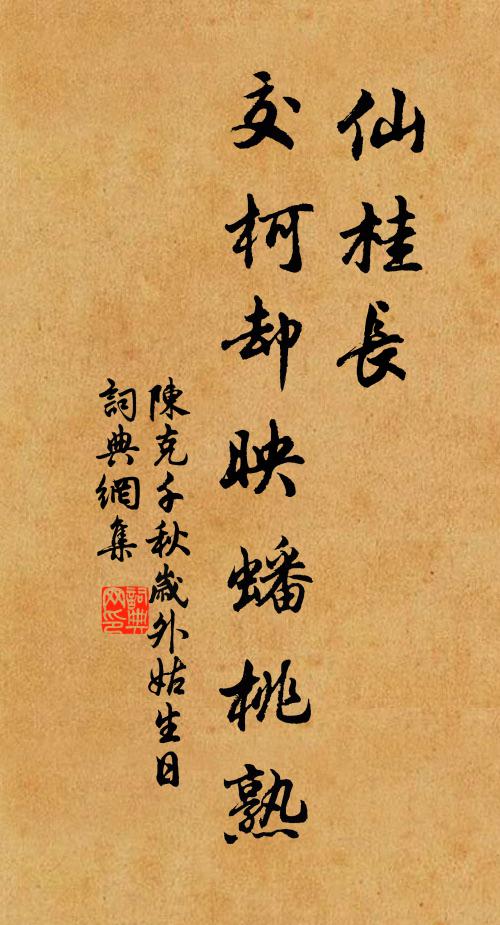 仙桂長
交柯却映蟠桃熟
陳克千秋歲外姑生日
詞典網集
詞典网印